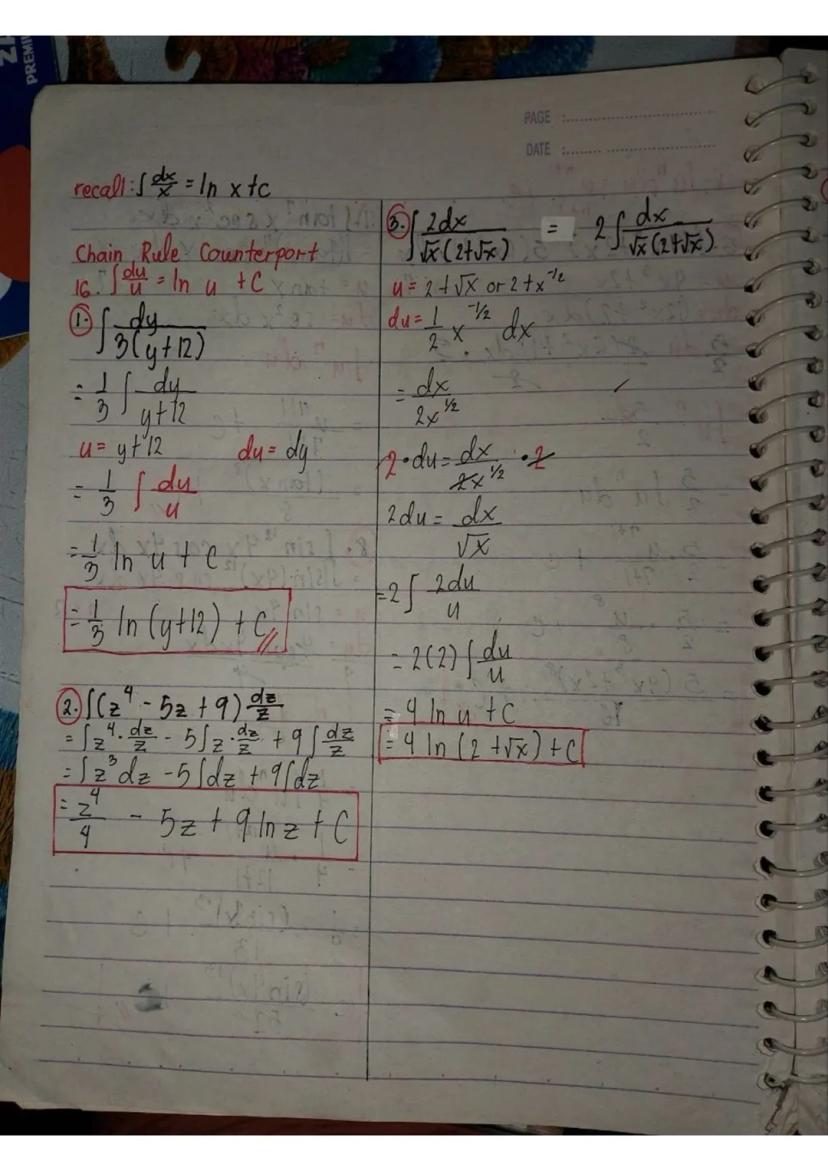 PREMI
PAGE :
DATE :
recall: ∫ dx/x = ln x + c
Chain Rule Counterport
16. ∫ du/u = ln u + C
1. ∫ dy/3(y+12)
= 1/3 ∫ dy/y+12
u = y+12 du = dy
= 1/3 ∫ du/u
= 1/3 ln u + C
= 1/3 ln (y+12) + C //
2. ∫(z⁴ - 5z + 9) dz/z
= ∫z⁴·dz/z - 5∫z·dz/z + 9∫dz/z
= ∫z³dz - 5∫dz + 9∫dz
= z⁴/4 - 5z + 9 ln z + C
3. ∫ 2dx/√x(2+√x) = 2∫ dx/√x(2+√x)
u = 2+√x or 2+x⁻¹/²
du = 1/2 x⁻¹/² dx
= dx/2x¹/²
2·du = dx/2x¹/² ·2
2du = dx/√x
=2∫ 2du/u
= 2(2)∫ du/u
= 4 ln u + C
= 4 ln (2+√x) + C